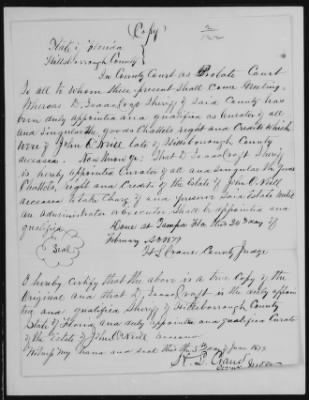 (Copy)
State of Florida
Hillsborough County
In County Court as Probate Court
To all to whom these present Shall come Greeting.
Whereas D. Isaac Craft Sheriff of Said County has
been duly appointed and qualified as Curator of all
and Singular the goods Chattels right and Credits which
were of John O'Neill late of Hillsborough County
deceased. Now Know Ye: That D. Isaac Craft Sheriff
is hereby appointed Curator of all and Singular the goods
Chattels, right and Credits of the Estate of John O'Neill
deceased to take Charge of and preserve Said Estate until
an administrator or Executor Shall be appointed and
qualified.
Done at Tampa Fla this day of
February AD 1879
H L Crane County Judge
Seal
I hereby Certify that the above is a true Copy of the
Original and that D. Isaac Craft is the duly appoin
ted and qualified Sheriff of Hillsborough County
State of Florida and duly appointed and qualified Curator
of the Estate of John O'Neill deceased
Witness my hand and seal this the 5th day of June 1879
H. L. Crane
County Judge